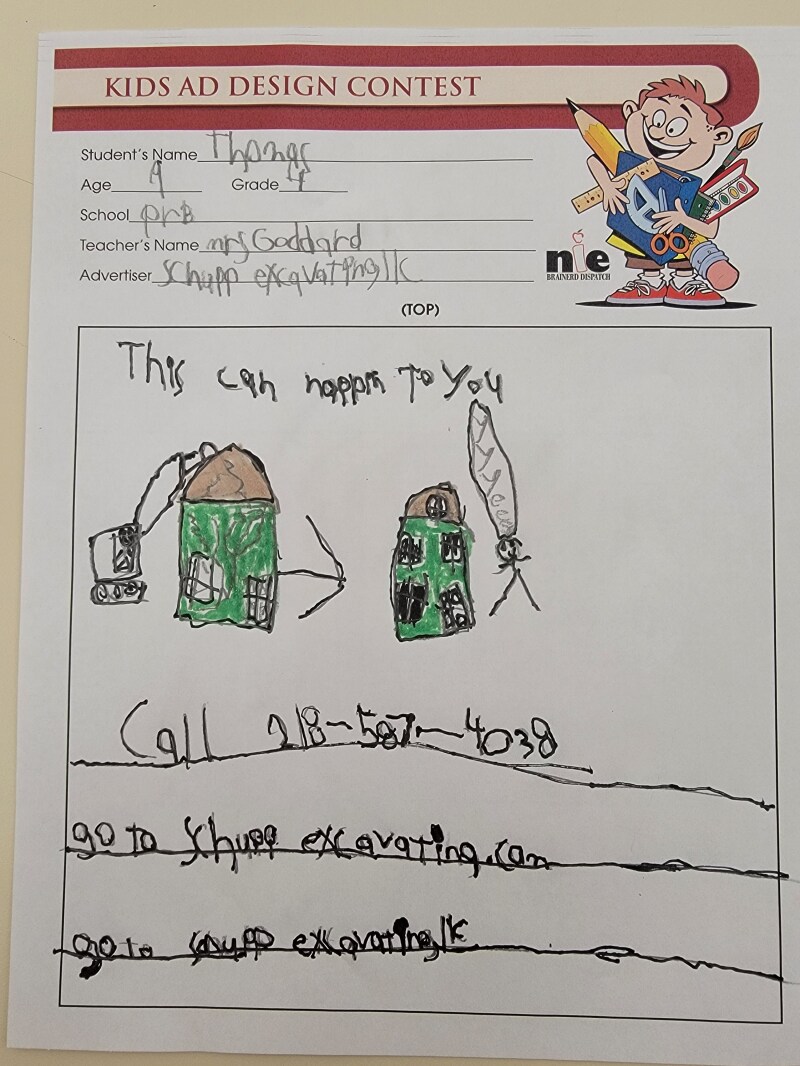 KIDS AD DESIGN CONTEST
Student's Name Thomas
Age 9 Grade 4
School prB
Teacher's Name mrs Goddard
Advertiser Schupp excavating llc
nie
BRAINERD DISPATCH
(TOP)
This can happin To you
Call 218-587-4038
go to Schupp excavating.com
go to Schupp excavating llc